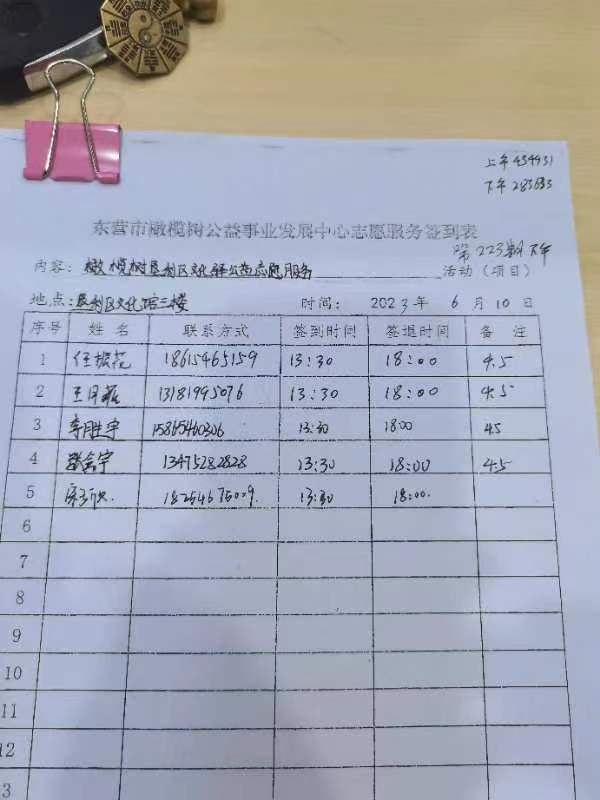 上午434931
下午285633
东营市橄榄树公益事业发展中心志愿服务签到表
第223期下午
内容: 橄榄树垦利区文化驿公益志愿服务 活动（项目）
地点: 垦利区文化馆三楼 时间: 2023年 6月10日
序号 姓名 联系方式 签到时间 签退时间 备注
1 任振花 18615465159 13:30 18:00 4.5
2 王月 13181995076 13:30 18:00 4.5
3 李胜宇 15865460306 13:30 18:00 4.5
4 13475282828 13:30 18:00 4.5
5 18254675009 13:30 18:00
6
7
8
9
10
11
12
3